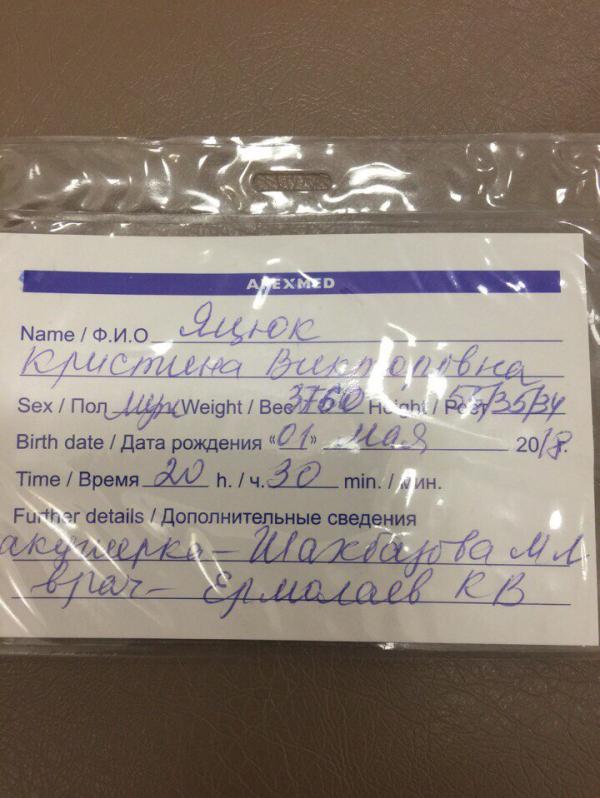 ALEXMED
Name / Ф.И.О Яцюк
Кристина Викторовна
Sex / Пол муж Weight / Вес 3760 Height / Рост 55/35/34
Birth date / Дата рождения «01» мая 2018.
Time / Время 20 h. / ч. 30 min. / мин.
Further details / Дополнительные сведения
акушерка – Шахбазова М Л
врач – Ермолаев К В